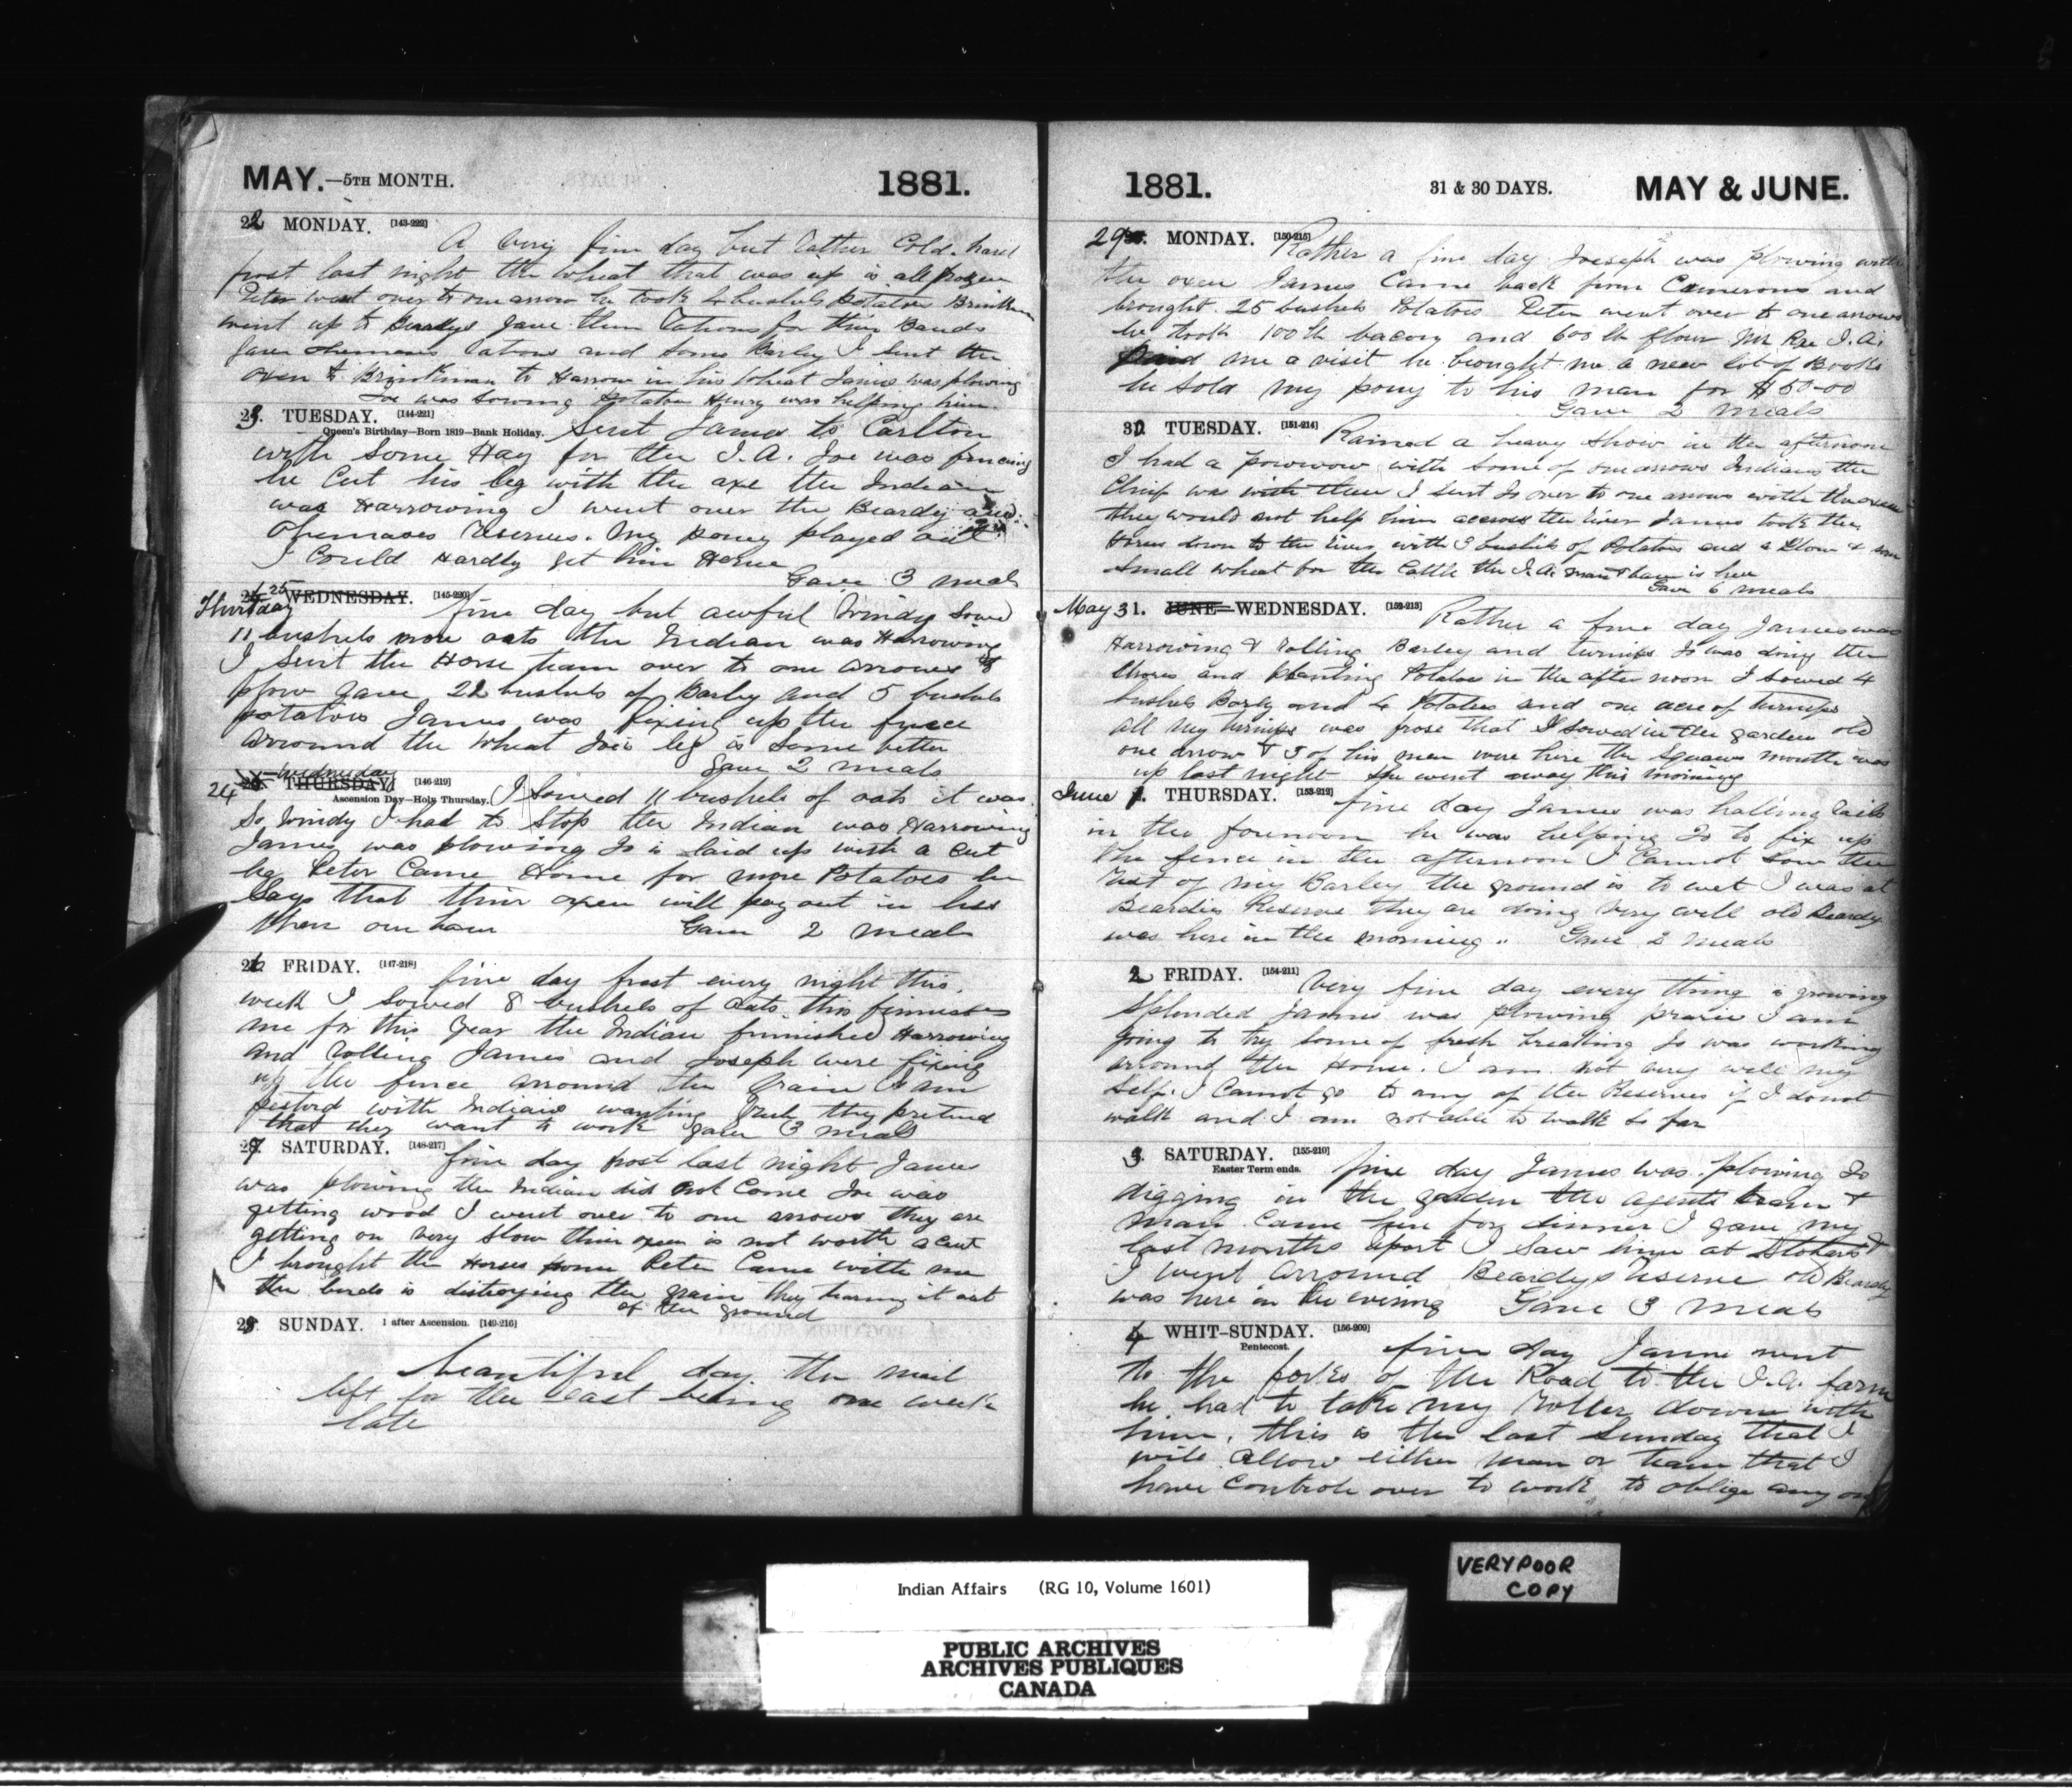 MAY.—5TH MONTH. 1881.
22 MONDAY. [143-222] A very fine day but rather Cold. hard
frost last night the wheat that was up is all frozen
Peter went over to one arrow he took 4 bushels Potatoes Brinkman
went up to Beardys gave them rations for their Bands
gave rations and some Barley I sent the
oxen to Brinkman to Harrow in his wheat James was plowing
Joe was sowing Potatoes Henry was helping him.
23. TUESDAY. [144-221]
Queen's Birthday—Born 1819—Bank Holiday. Sent James to Carlton
with some Hay for the I.A. Joe was fencing
he Cut his leg with the axe the Indian
was Harrowing I went over the Beardy and
Okemases Reserves. My Poney played out
I Could Hardly get him Home
Gave 3 meals
25 WEDNESDAY. [145-220]
Thursday fine day but awful Windy Sowed
11 bushels more oats the Indian was Harrowing
I Sent the Horse team over to one arrows to
plow gave 22 bushels of Barley and 5 bushels
potatoes James was fixing up the fence
arround the wheat Joes leg is Some better
Gave 2 meals
Wednesday
24 THURSDAY [146-219]
Ascension Day—Holy Thursday. I Sowed 11 bushels of oats it was
So Windy I had to Stop the Indian was Harrowing
James was plowing Jo is laid up with a Cut
leg Peter Came Home for more Potatoes he
Says that their oxen will pay out in less
then our hour Gave 2 meals
26 FRIDAY. [147-218] fine day frost every night this
week I Sowed 8 bushels of Oats this finnishes
me for this Year the Indian finnished Harrowing
and rolling James and Joseph were fixing
up the fence arround the Grain I am
pesterd with Indians wanting Grub they pretend
that they want to work gave 3 meals
27 SATURDAY. [148-217] fine day frost last night James
was plowing the Indian did not Come Joe was
getting wood I went over to one arrows they are
getting on very Slow their oxen is not worth a Cent
I brought the Horses home Peter Came with me
the birds is distroying the grain they tearing it out
of the ground
28 SUNDAY. 1 after Ascension. [149-216]
beautiful day the mail
left for the East being one week
late
1881. 31 & 30 DAYS. MAY & JUNE.
29 MONDAY. [150-215] Rather a fine day Joeseph was plowing with
the oxen James Came back from Camerons and
brought 25 bushels Potatoes Peter went over to one arrows
he took 100 lb bacon and 600 lb flour Mr Rae I.A.
Paid me a visit he brought me a new lot of Books
he Sold my pony to his man for $50-00
Gave 2 meals
30 TUESDAY. [151-214] Rained a heavy Show in the afternoon
I had a powwow with Some of one arrows Indians the
Chief was with them I Sent Jo over to one arrows with the oxen
they would not help him accross the river James took the
Horses down to the river with 3 bushels of Potatoes and a Plow &
Small wheat for the Cattle the I.A. man & team is here
Gave 6 meals
May 31. JUNE WEDNESDAY. [152-213] Rather a fine day James was
Harrowing & rolling Barley and turnips Jo was doing the
Chores and planting Potatoes in the after noon I sowed 4
bushels Barly and 4 Potatoes and one acre of turnips
all my turnips was froze that I Sowed in the garden old
one arrow & 3 of his men were here the Squaws mouth was
up last night She went away this morning
June 1. THURSDAY. [153-212] fine day James was halling rails
in the forenoon he was helping Jo to fix up
the fence in the afternoon I Cannot Sow the
rest of my Barley the ground is to wet I was at
Beardies Reserve they are doing Very well old Beardy
was here in the morning. Gave 2 meals
2 FRIDAY. [154-211] Very fine day every thing is growing
Splended James was plowing prarie I am
going to try Some of fresh breaking Jo was working
arround the House. I am not very well my
Self. I Cannot go to any of the Reserves if I do not
walk and I am not able to walk so far
3. SATURDAY. [155-210]
Easter Term ends. fine day James was plowing Jo
digging in the garden the agents team &
man Came here for dinner I gave my
last months report I Saw him at Stobarts &
I went arround Beardys reserve old Beardy
was here in the evening Gave 3 meals
4 WHIT-SUNDAY. [156-209]
Pentecost. fine day James went
to the forks of the Road to the I.A. farm
he had to take my Roller down with
him, this is the last Sunday that I
will allow either man or team that I
have controle over to work to oblige any one
VERY POOR
COPY
Indian Affairs (RG 10, Volume 1601)
PUBLIC ARCHIVES
ARCHIVES PUBLIQUES
CANADA